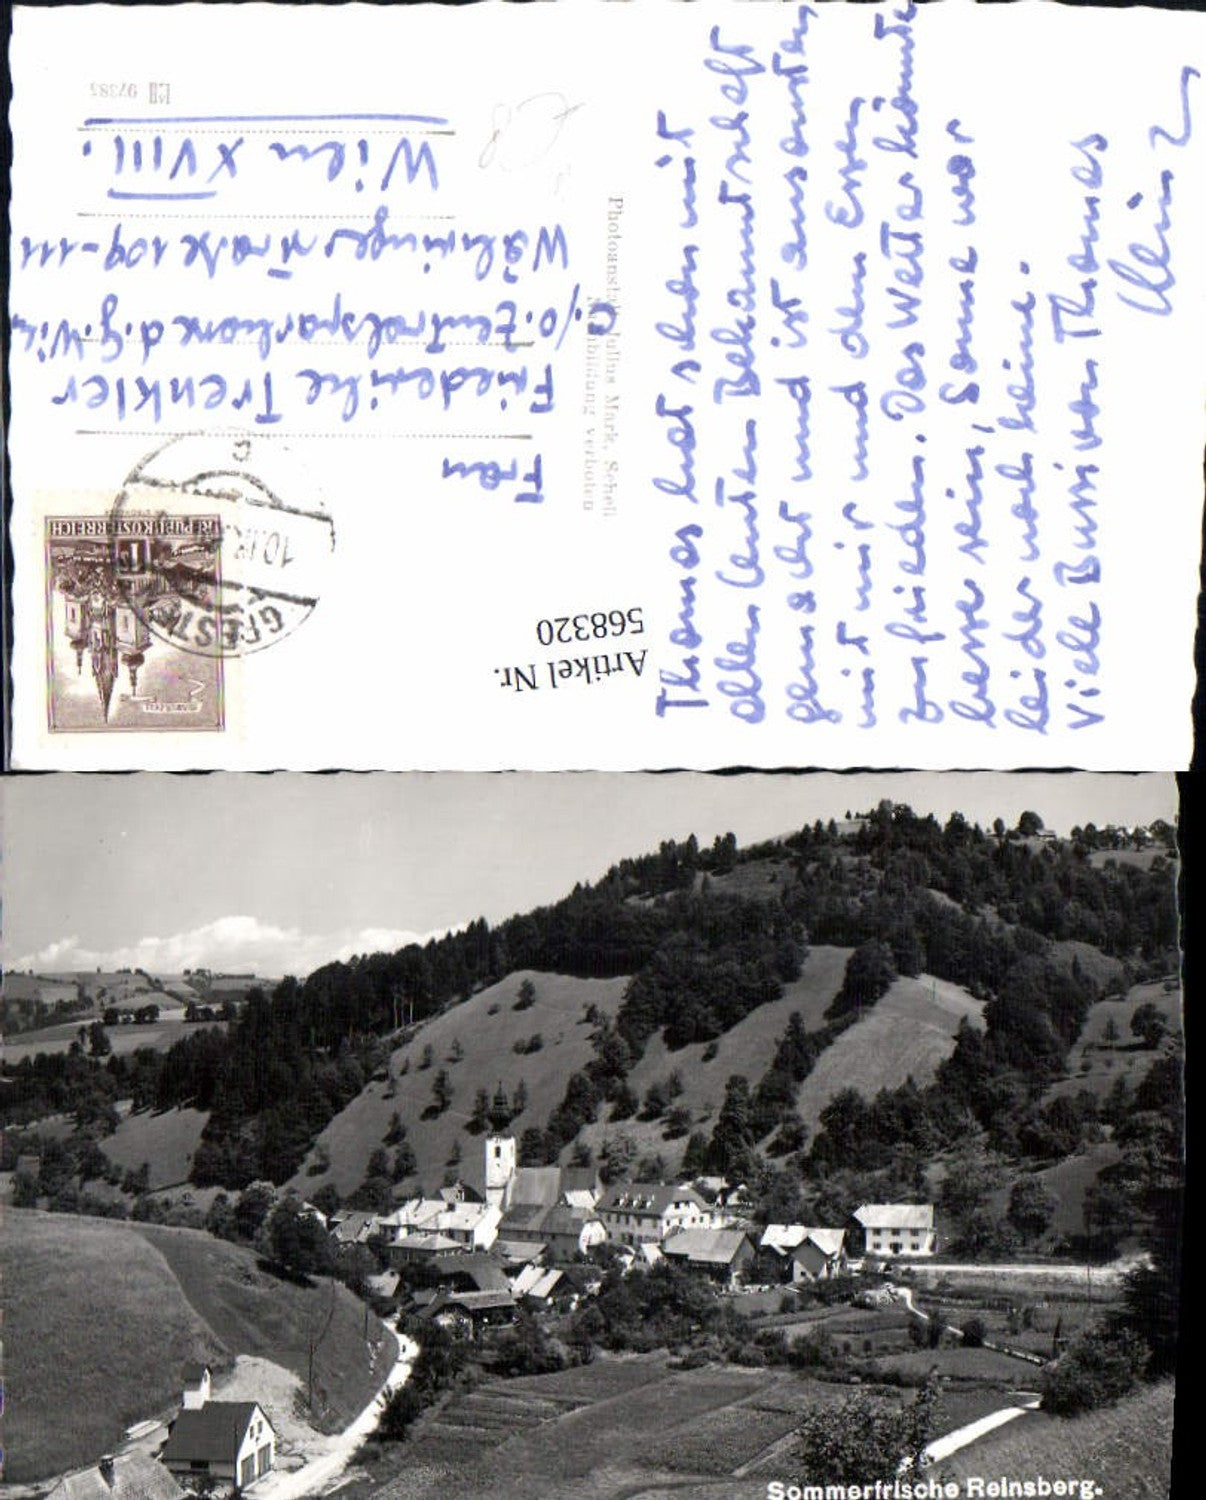 Thomas hat schon mit
allen Leuten Bekanntschaft
gemacht und ist ansonsten
mit mir und dem Essen
zufrieden. Das Wetter könnte
besser sein, Sonne war
leider noch keine.
Viele Bussi von Thomas
Frau
Friederike Trenkler
p.o. Zentralsparkasse d. g. Wien
Währingerstraße 109-111
Wien XVIII.
Photoanstalt Julius Mark, Scheibbs
Nachbildung verboten
Artikel Nr.
568320
REPUBLIK ÖSTERREICH
MARIAZELL
GFÖSTL
10.
97385
Sommerfrische Reinsberg.